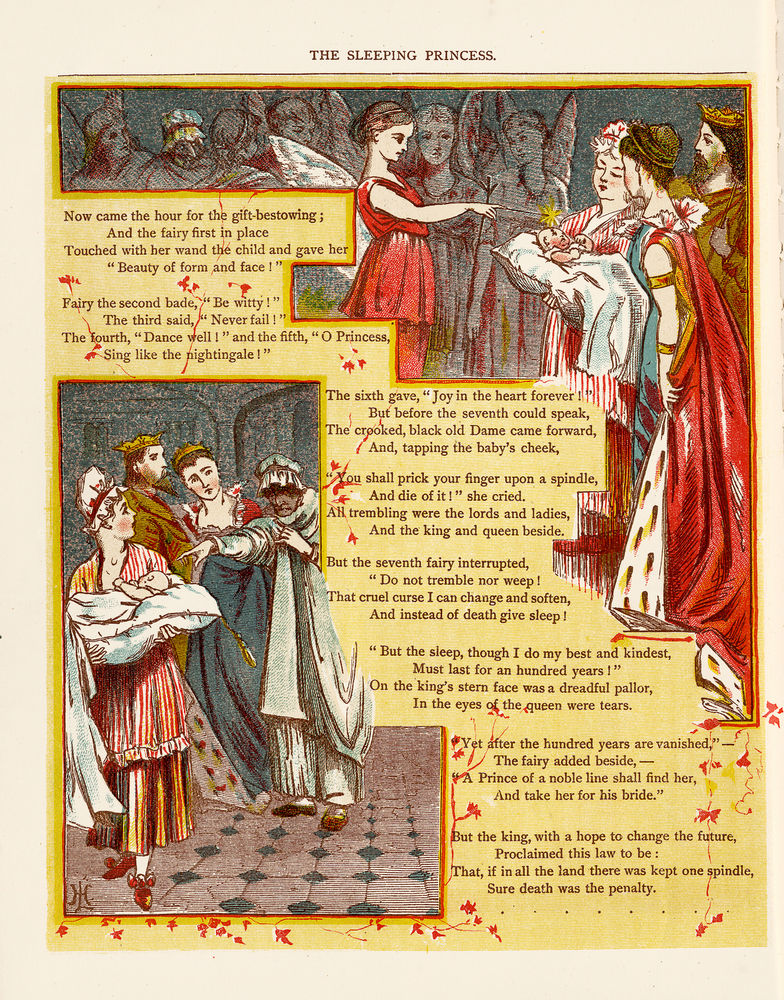 THE SLEEPING PRINCESS.
Now came the hour for the gift-bestowing;
And the fairy first in place
Touched with her wand the child and gave her
"Beauty of form and face!"
Fairy the second bade, "Be witty!"
The third said, "Never fail!"
The fourth, "Dance well!" and the fifth, "O Princess,
Sing like the nightingale!"
The sixth gave, "Joy in the heart forever!"
But before the seventh could speak,
The crooked, black old Dame came forward,
And, tapping the baby's cheek,
"You shall prick your finger upon a spindle,
And die of it!" she cried.
All trembling were the lords and ladies,
And the king and queen beside.
But the seventh fairy interrupted,
"Do not tremble nor weep!
That cruel curse I can change and soften,
And instead of death give sleep!
"But the sleep, though I do my best and kindest,
Must last for an hundred years!"
On the king's stern face was a dreadful pallor,
In the eyes of the queen were tears.
"Yet after the hundred years are vanished,"—
The fairy added beside,—
"A Prince of a noble line shall find her,
And take her for his bride."
But the king, with a hope to change the future,
Proclaimed this law to be:
That, if in all the land there was kept one spindle,
Sure death was the penalty.